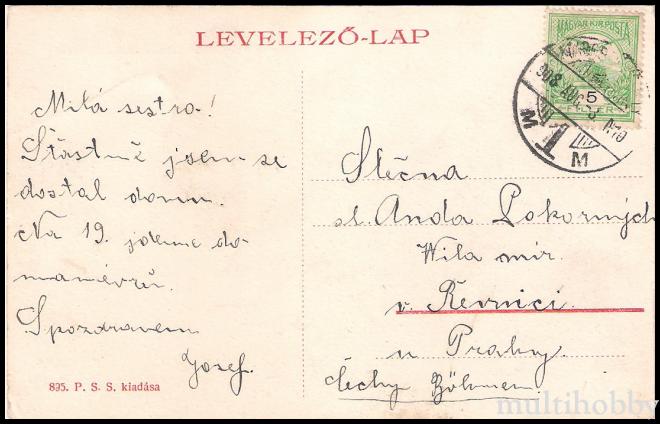 LEVELEZŐ-LAP
MAGYAR KIR. POSTA
5
FILLER
908 AUG
M
1
M
Milá sestro!
Šťastně jsem se
dostal domu.
Na 19. jdeme do
manévrů.
S pozdravem
Jozef.
895. P. S. S. kiadása
Slečna
sl. Anda Pokorných
Wila mír.
v. Řevnici.
u Prahy
Čechy Böhmen
multihobby